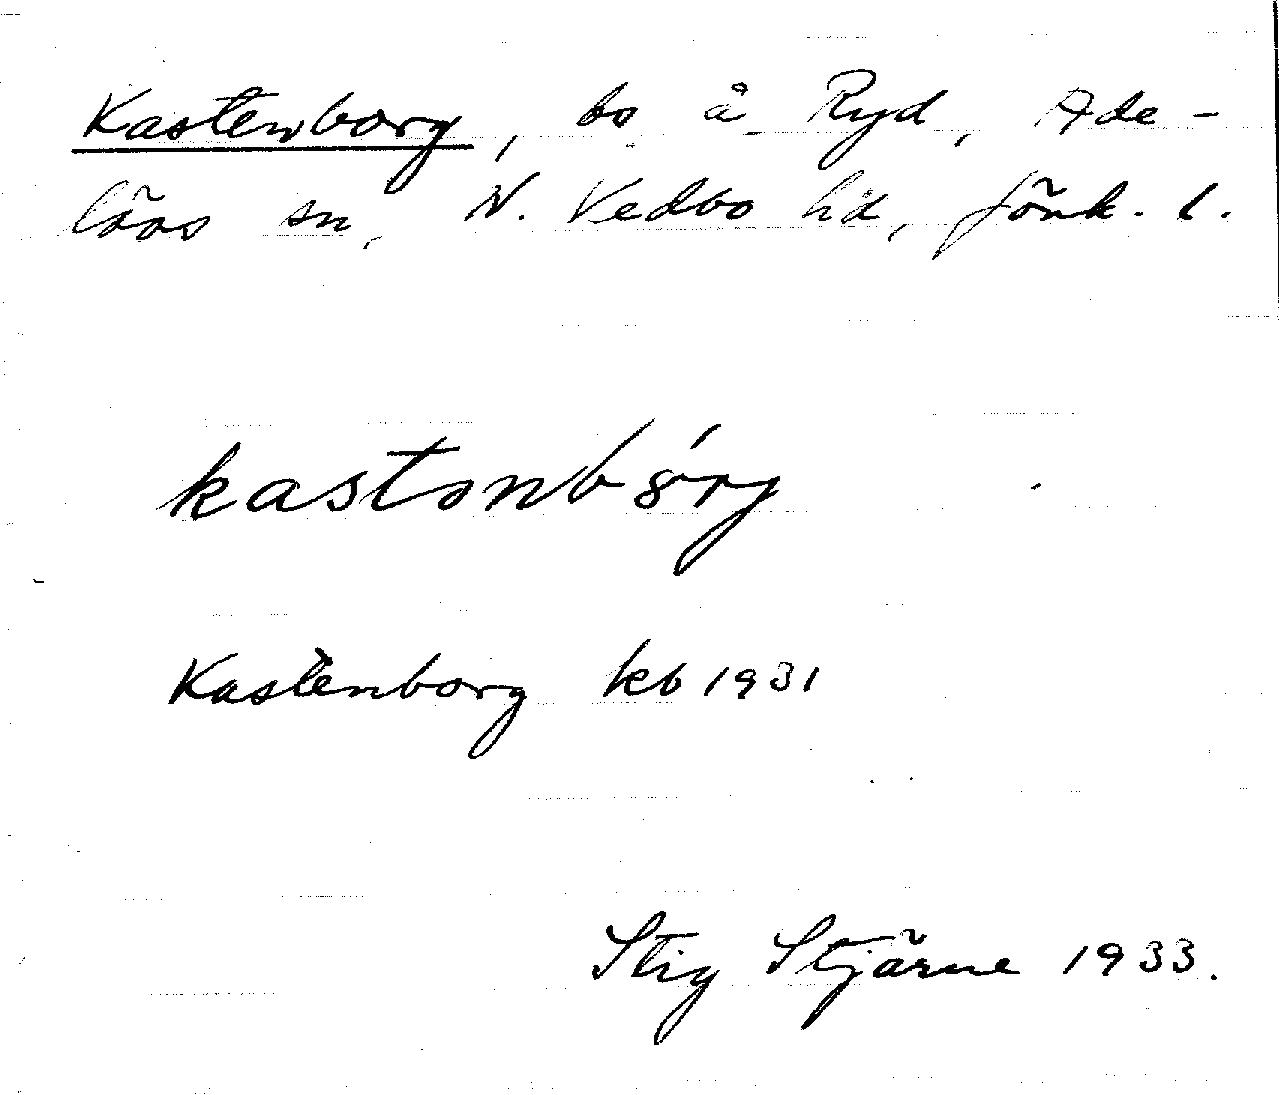 Kastenborg, bs å Ryd, Ade-
lövs sn, N. Vedbo hd, Jönk. l.
kastənbȣ́rj
Kastenborg kb 1931
Stig Stjärne 1933.